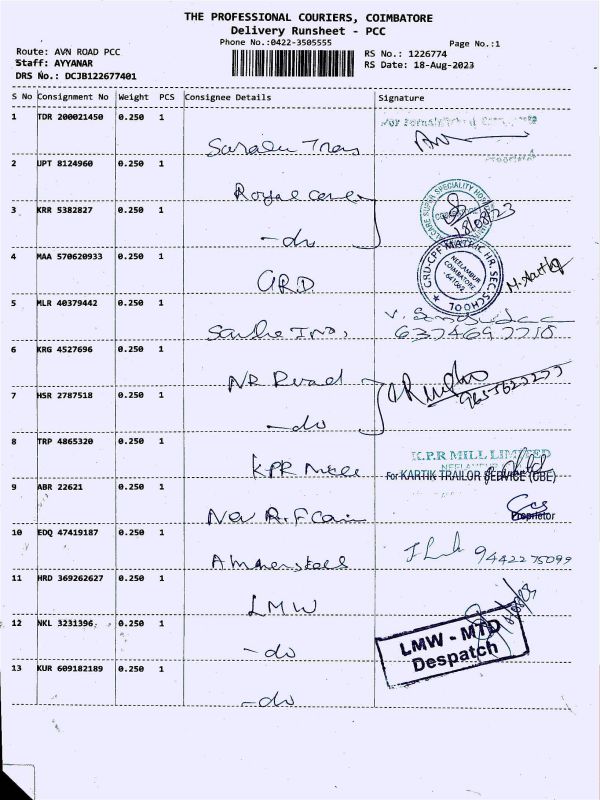 THE PROFESSIONAL COURIERS, COIMBATORE
Delivery Runsheet - PCC
Phone No.:0422-3505555
Page No.:1
Route: AVN ROAD PCC
RS No.: 1226774
Staff: AYYANAR
RS Date: 18-Aug-2023
DRS No.: DCJB122677401
S No Consignment No Weight PCS Consignee Details Signature
1 TDR 200021450 0.250 1
2 UPT 8124960 0.250 1 Royal care
3 KRR 5382827 0.250 1 -do 18/08/23
4 MAA 570620933 0.250 1 GRD
GRD-CPF MATRIC HR. SEC. SCHOOL
NEELAMBUR
COIMBATORE
5 MLR 40379442 0.250 1
6 KRG 4527696 0.250 1 NR Road
7 HSR 2787518 0.250 1 -do
8 TRP 4865320 0.250 1 KPR Mills
K.P.R MILL LIMITED
For KARTIK TRAILOR SERVICE (CBE)
9 ABR 22621 0.250 1
Proprietor
10 EDQ 47419187 0.250 1 9442275099
11 HRD 369262627 0.250 1 LMW
12 NKL 3231396 0.250 1 -do
LMW - MTD
Despatch
13 KUR 609182189 0.250 1 -do